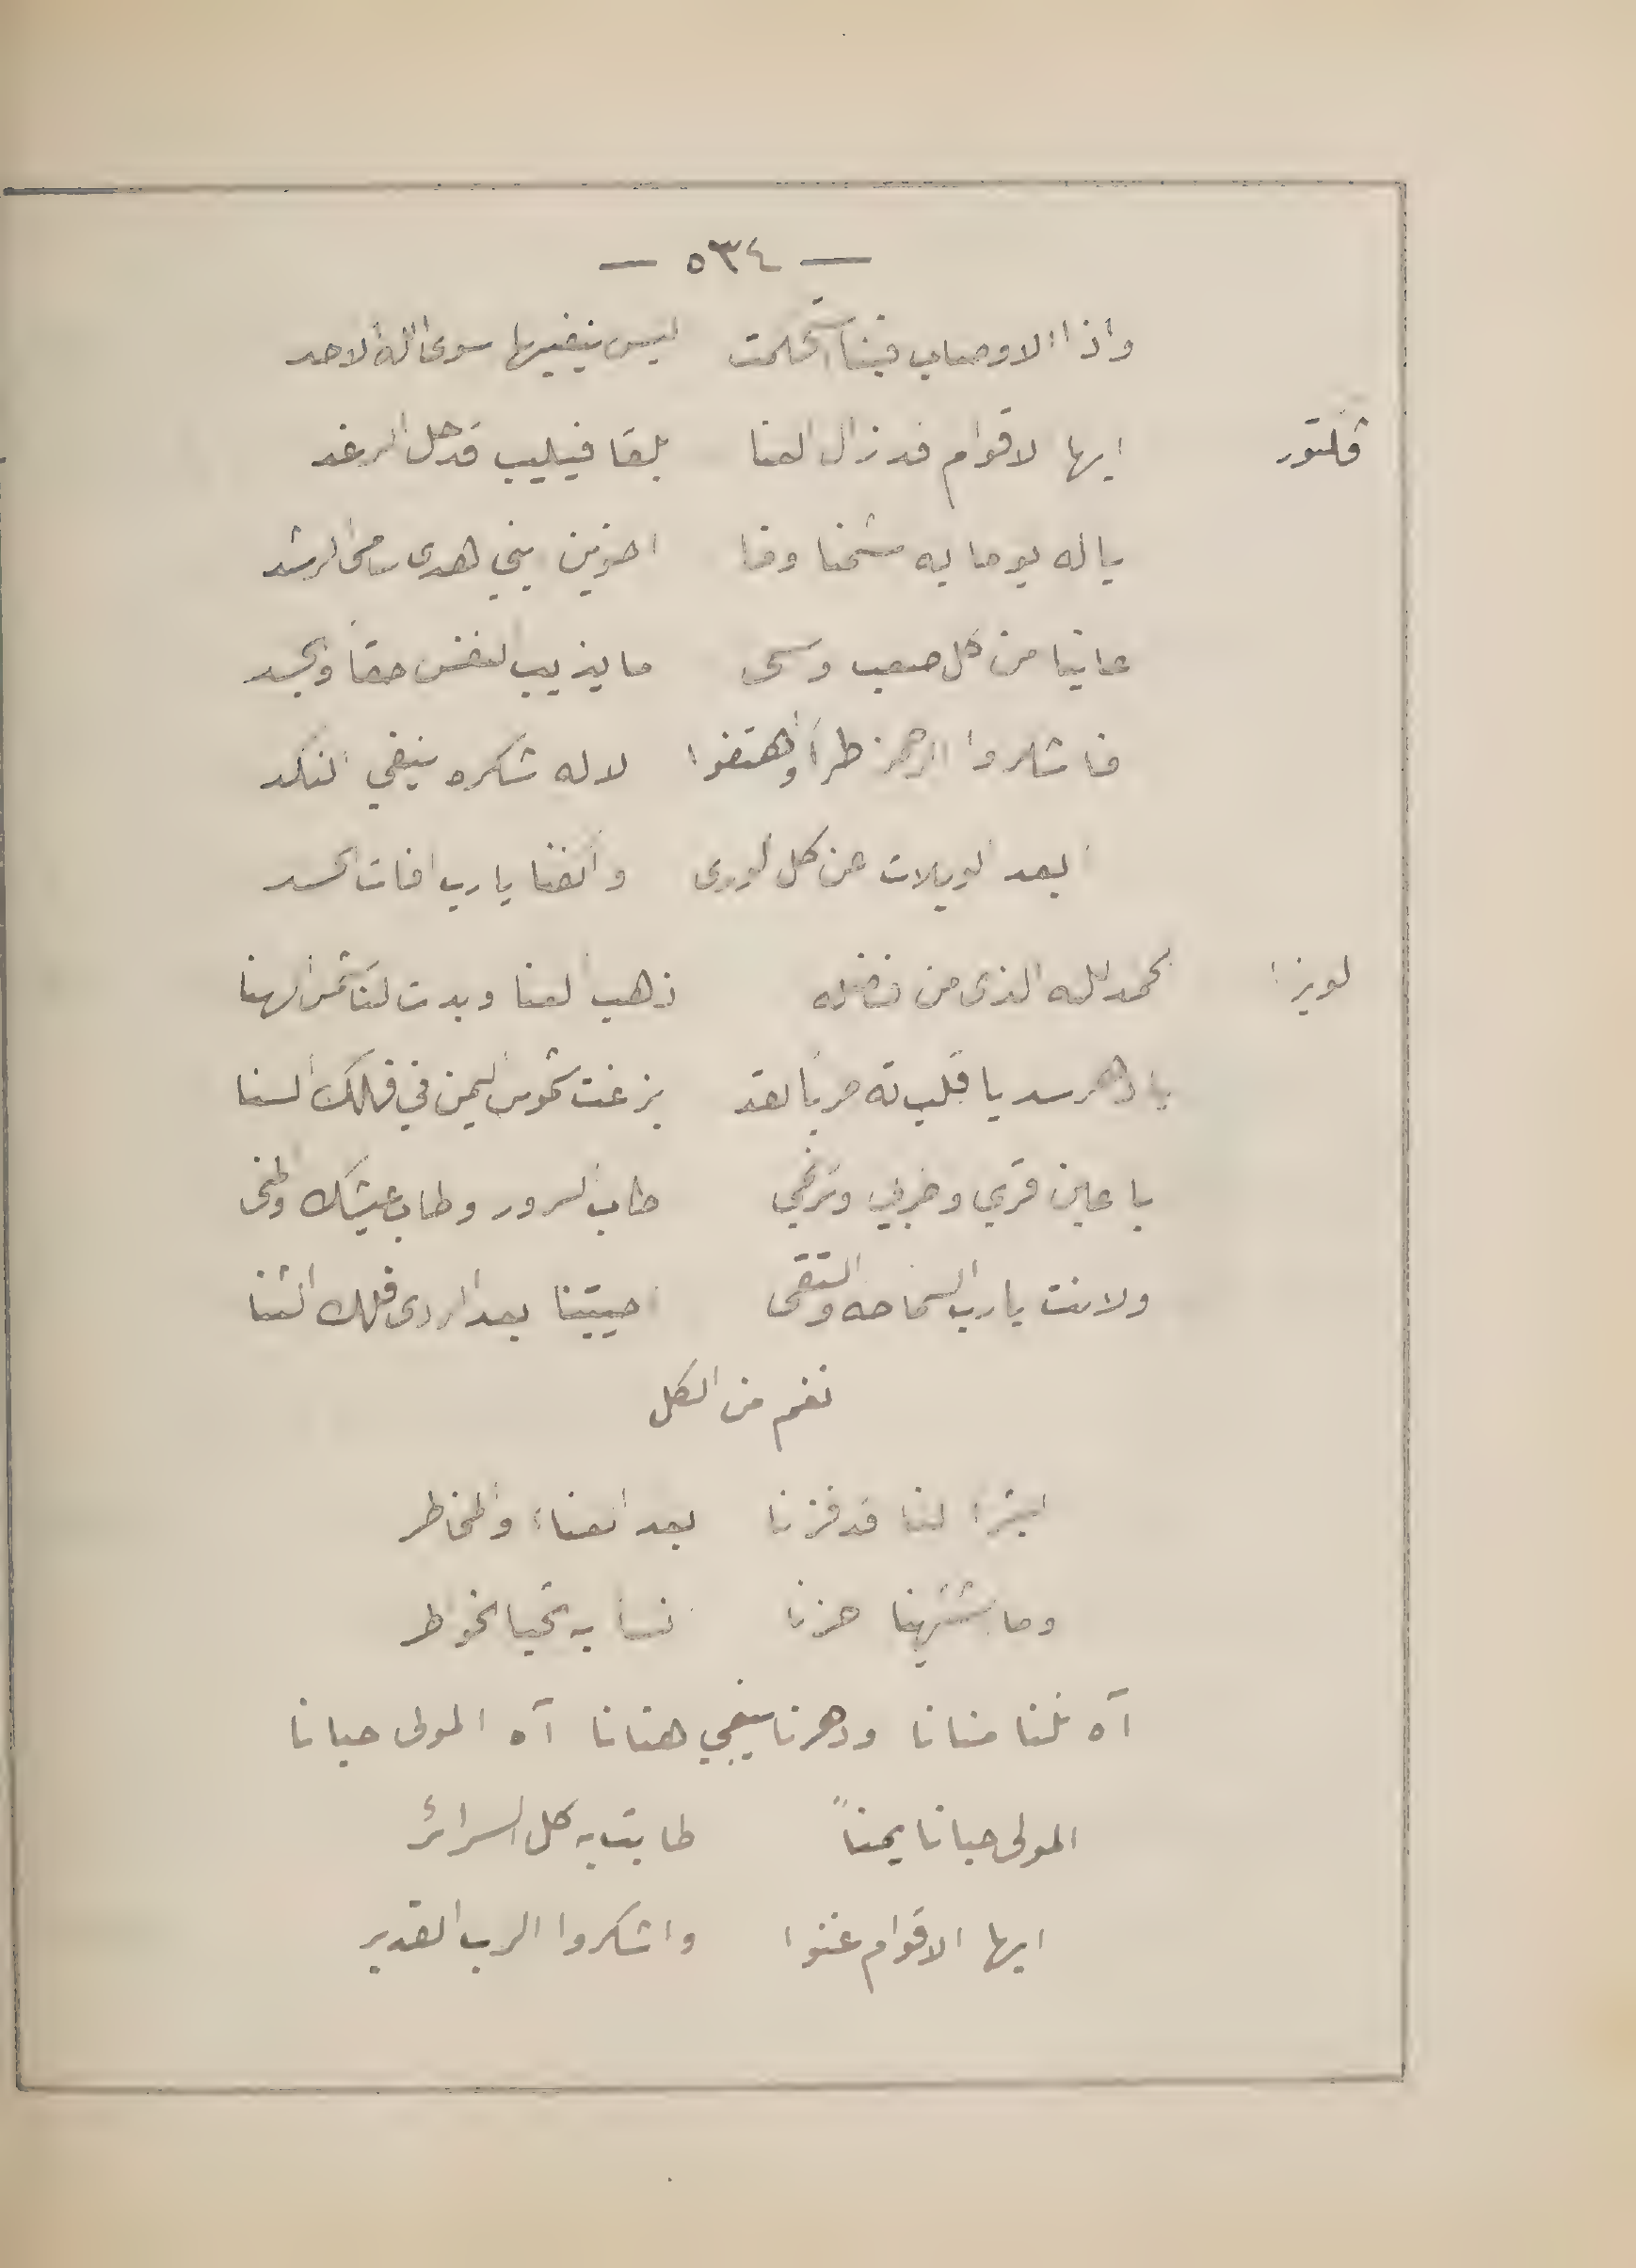 — ٥٣٤ —
واذا الاوصاب فينا استحكمت ليس ينفيها سوى الله الاحد
ڤكتور ايها الاقوام قد زال العنا بلقا فيليب قد حل الرغد
ياله يوما به شمنا وفا اخوين بني هدى سامي الرشد
عاينا من كل صعب وسمى ما يذيب النفس حقا والجسد
فاشكروا الرحمن طراً واهتفوا لا له شكره ينفي النكد
ابعد الويلات عن كل الورى واكفنا يارب افات الحسد
لويزا الحمد لله الذي من فضله ذهب العنا وبدت لنا شمس الهنا
يا دهر سد يا قلب ته مربا لقد بزغت شموس اليمن في فلك السنا
يا عين قري واخربي وترنمي طاب السرور وطاب عيشك والمنى
ولانت يارب السماحه والتقى احييتنا بعد الردى فلك الثنا
نغم من الكل
البشرا لنا قد فزنا بعد العناء والمخاطر
وما حزنا به تحيا الخواطر
آه نلنا منانا ودهرنا هنانا آه المولى حبانا
المولى حبانا يمناً طابت به كل السرائر
ايها الاقوام غنوا واشكروا الرب القدير